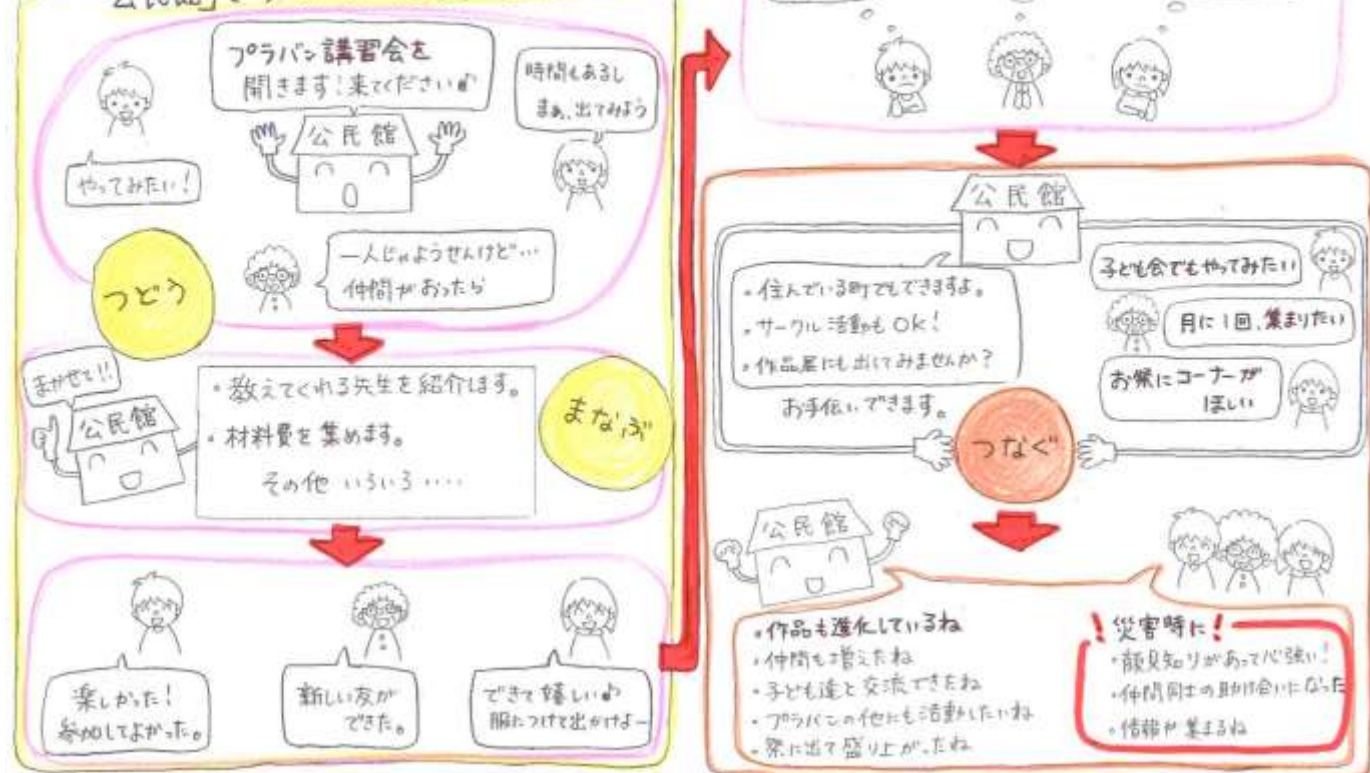 公民館」で
プラバン講習会を
開きます!来てください♪
時間もあるし
まぁ、出てみよう
公民館
やってみたい!
一人じゃようせんけど…
仲間がおったら
つどう
まかせて!!
公民館
・教えてくれる先生を紹介します。
・材料費を集めます。
その他 いろいろ‥‥
まなぶ
楽しかった!
参加してよかった。
新しい友が
できた。
できて嬉しい♪
服につけて出かけよー
公民館
・住んでいる町でもできますよ。
・サークル活動もOK!
・作品展にも出してみませんか?
お手伝いできます。
子ども会でもやってみたい
月に1回、集まりたい
お祭にコーナーが
ほしい
つなぐ
公民館
・作品も進化しているね
・仲間も増えたね
・子ども達と交流できたね
・プラバンの他にも活動したいね
・祭に出て盛り上がったね
!災害時に!
・顔見知りがあって心強い!
・仲間同士の助け合いになった
・情報が集まるね